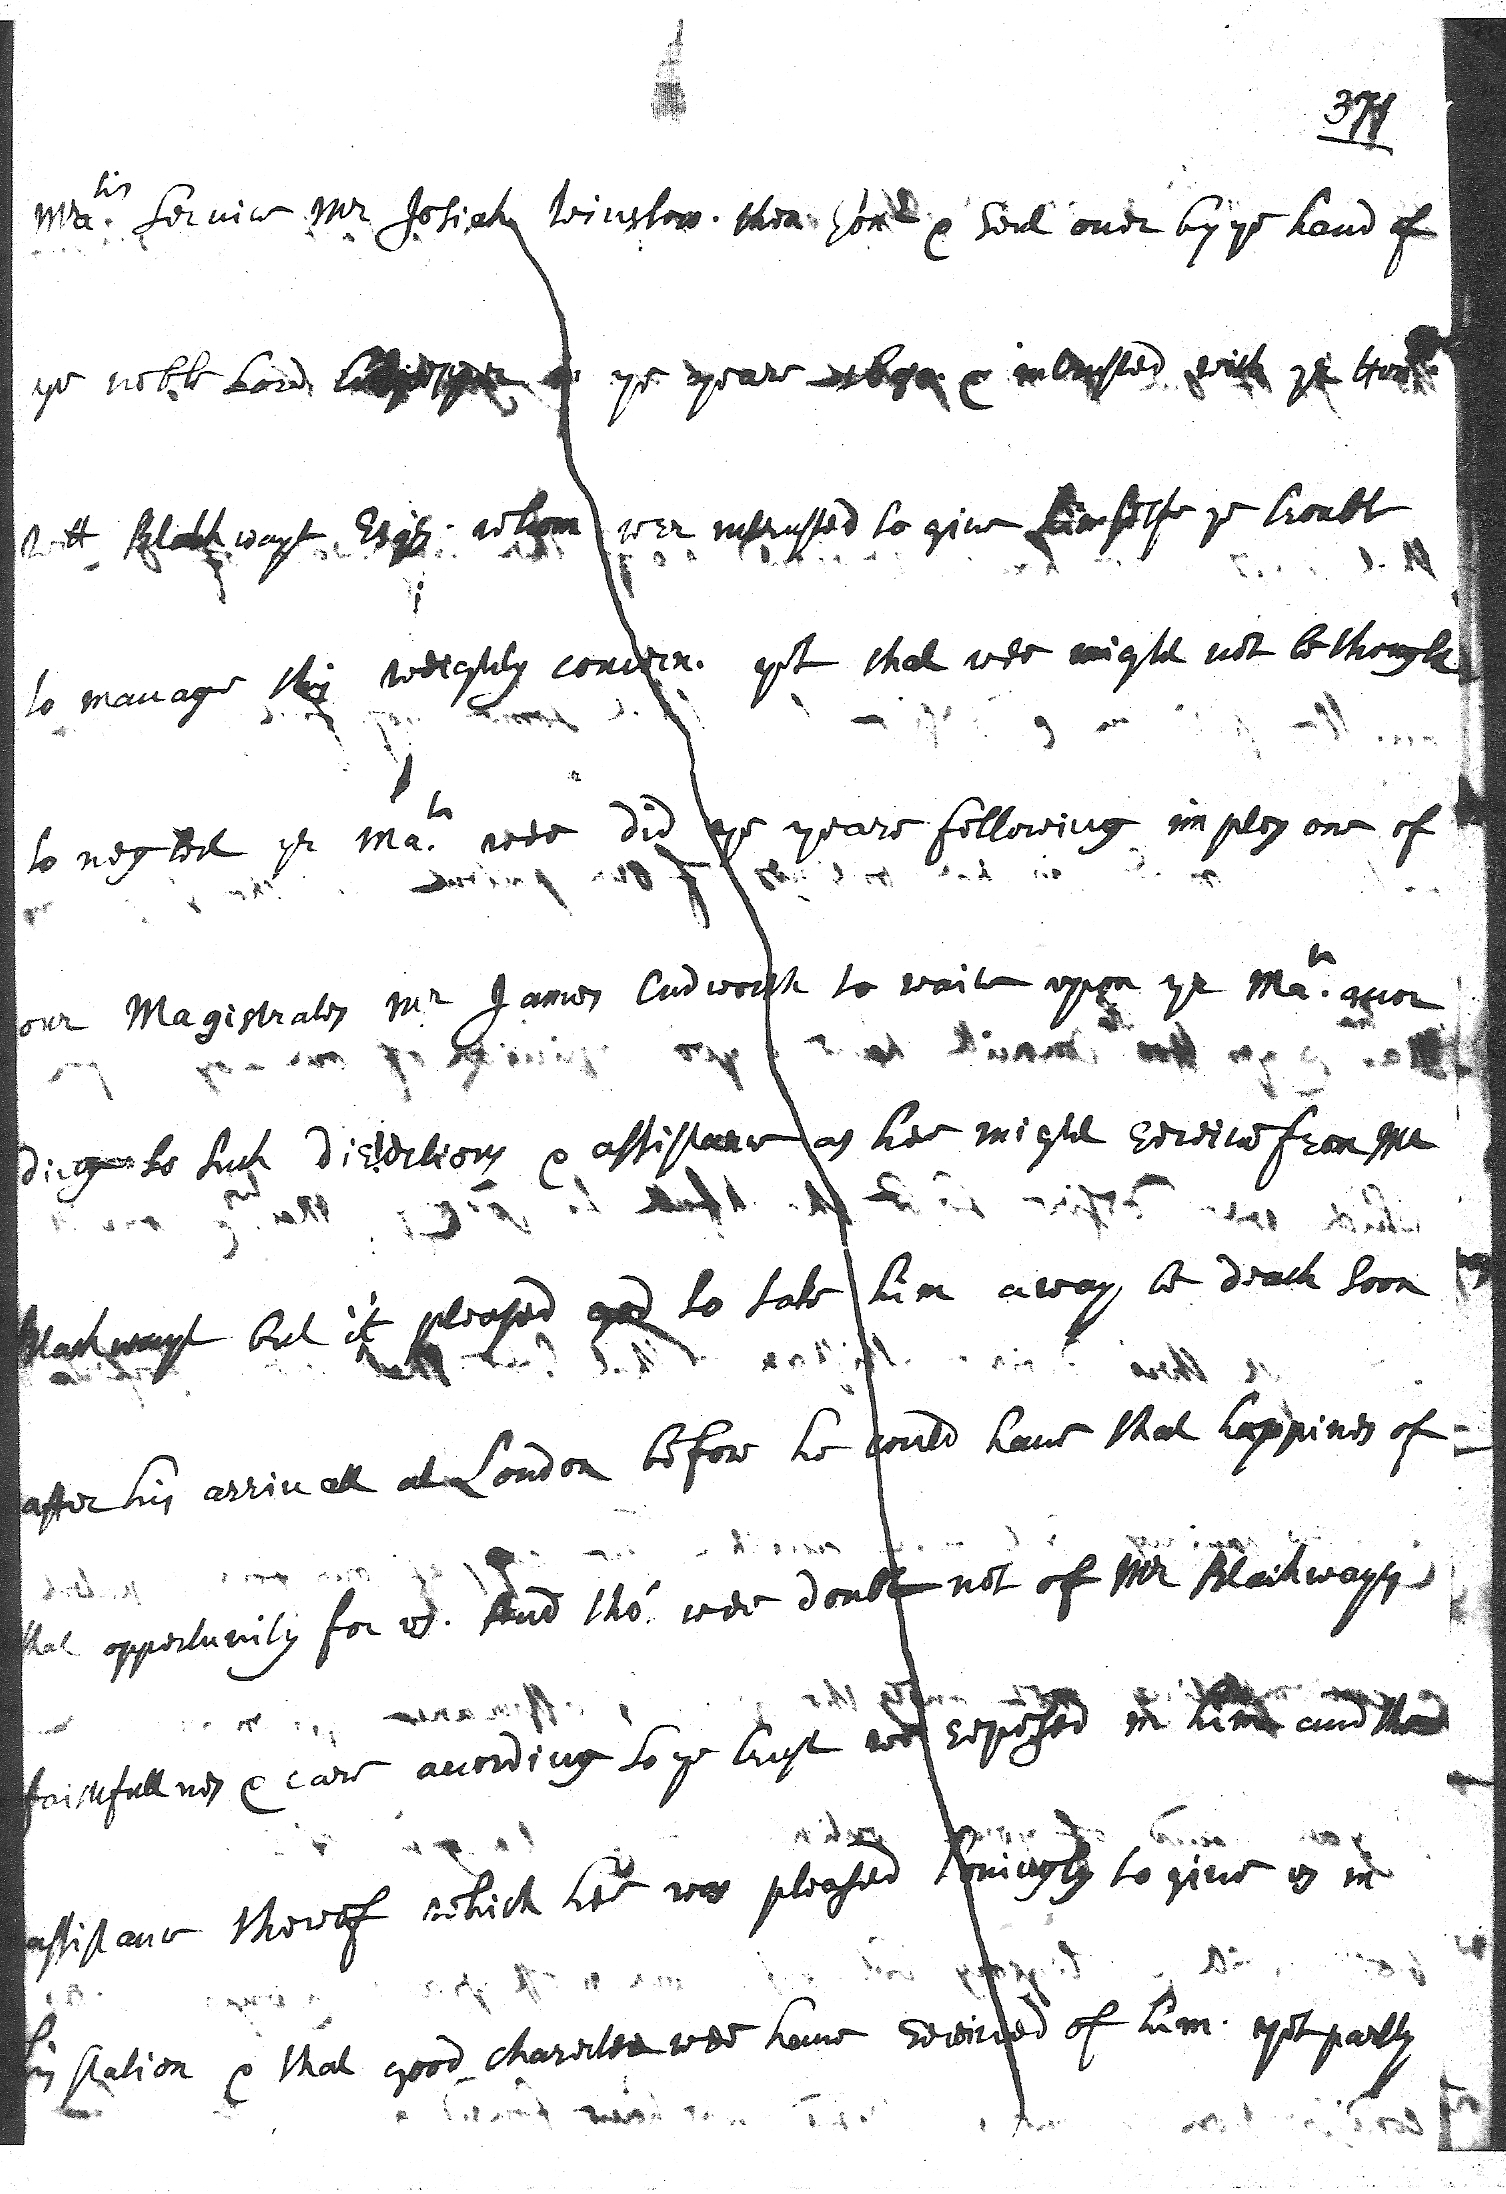 371
Ma:tis Service Mr Josiah Winslow. then Gour & sent over by ye hand of
ye noble Lord Culpepper in ye yeare & intrusted with ye Honble
Will Blathwayt Esqr. whom wee intrusted to give himselfe ye trouble
to manage this weighty concern. yet that wee might not be thought
to neglect yr Ma:tie wee did ye yeare following imploy one of
our Magistrates Mr James Cudworth to waite upon yr Ma:tie accor
ding to such directions & assistance as hee might receive from Mr
Blathwayt but it pleased god to take him away be death soon
after his arrivall at London before he could have that happines of
that oppertunity for us. And tho' wee doubt not of Mr Blaithwayts
faithfullnes & care according to ye trust wee reposed in him and the
assistance thereof which hee was pleased lovingly to give us in
his station & that good charecter wee have received of him. yet partly